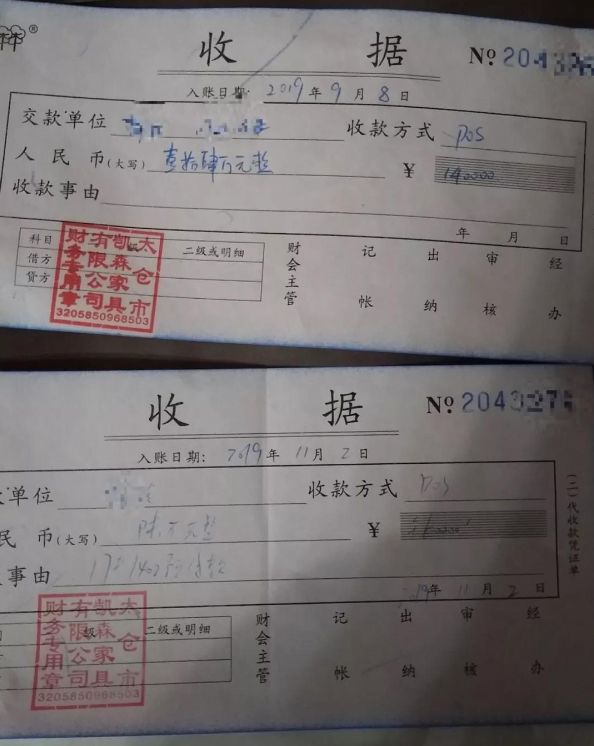 祥®
收 据 № 204
入账日期: 2019年 9月 8日
交款单位 收款方式 POS
人民币(大写) 壹拾肆万元整 ¥ 140000
收款事由
年 月 日
科目 级 二级或明细
借方
贷方
财会主管 记帐 出纳 审核 经办
太仓市
凯森家具
有限公司
财务专用章
3205850968503
收 据 № 204
入账日期: 2019年 11月 2日
单位 收款方式 POS
民币(大写) 陆万元整 ¥
事由
2019年 11月 2日
级 二级或明细
财会主管 记帐 出纳 审核 经办
(二)代收款凭证单
太仓市
凯森家具
有限公司
财务专用章
3205850968503